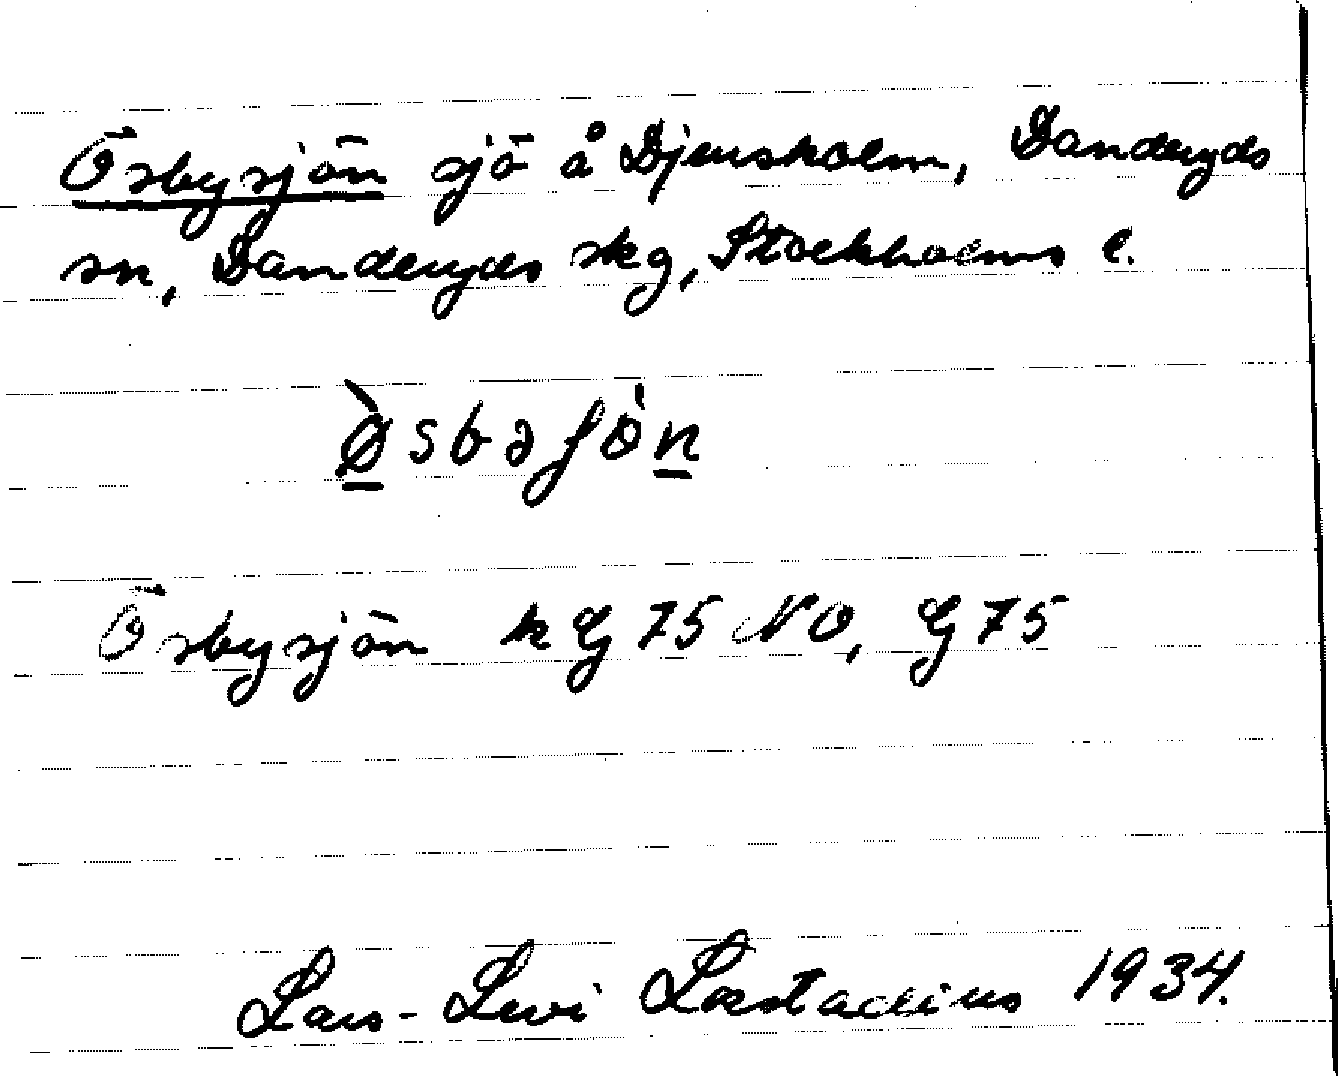 Ösbysjön sjö å Djursholm, Danderyds
sn, Danderyds skg, Stockholms l.
Ø̀sbəʃöǹ
Ösbysjön k G 75 NO, G 75
Lars-Levi Læstadius 1934.